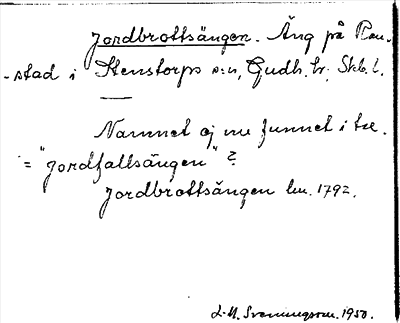 Jordbrottsängen. Äng på Ran-
-stad i Stenstorps s:n, Gudh. hr. Skb. l.
Namnet ej nu funnet i tre.
= "Jordfallsängen" ?
Jordbrottsängen lm. 1792.
L-M. Svenningson. 1950.